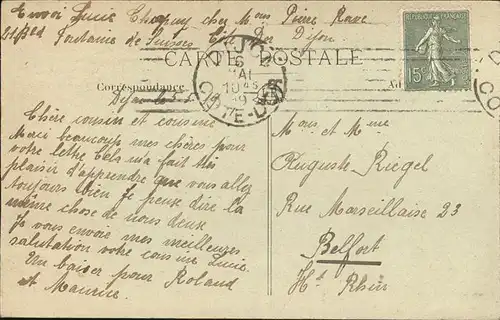 Envoi Lucie Chapuy chez Mons Pierre Rave
21 Bld Fontaine de Suisses Côte Dor Dijon
CARTE POSTALE
RÉPUBLIQUE FRANÇAISE
15c
DIJON
6
MAI
10 45
19
COTE-D'OR
Correspondance
Dijon le 5
Chère cousin et cousine
Merci beaucoup mes chères pour
votre lettre Cela m'a fait très
plaisir d'apprendre que vous allez
toujours bien Je peux dire la
même chose de nous deux
Je vous envoie mes meilleures
salutation votre cousine Lucie.
Un baiser pour Roland
et Maurice.
Mons et Mme
Auguste Riegel
Rue Marseillaise 23
Belfort
Ht Rhin